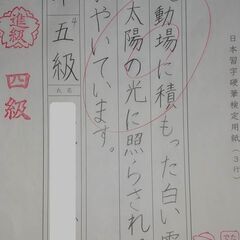 日本習字硬筆検定用紙(3行)
動場に積もった白い雪
太陽の光に照らされ、
やいています。
五級
氏名
進級
四級